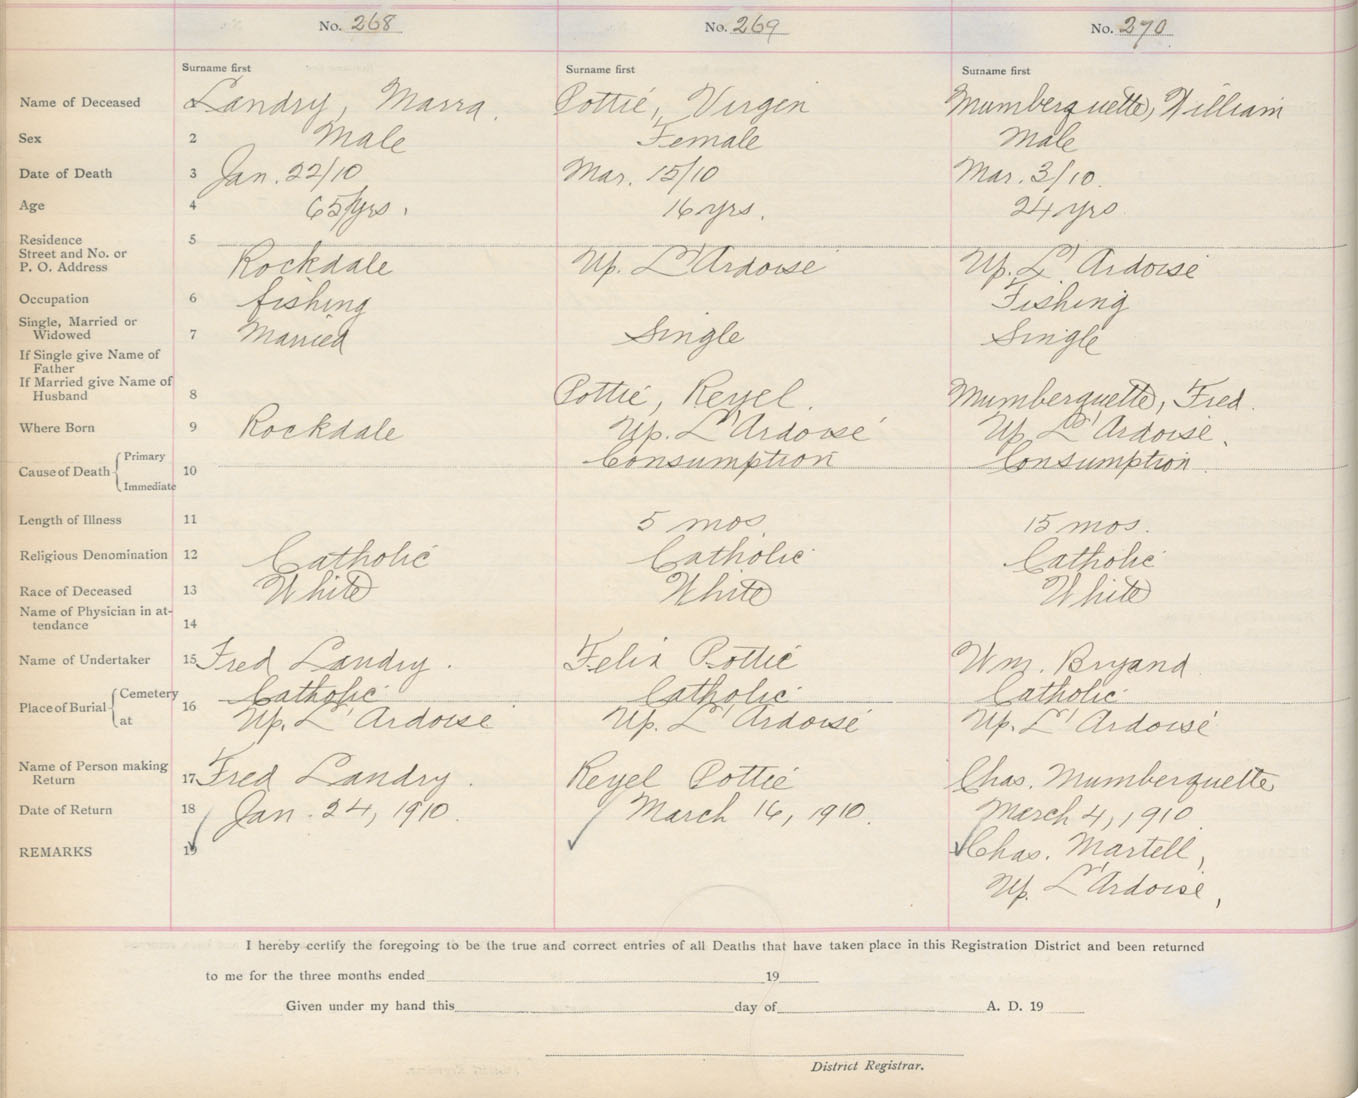 No. 268 No. 269 No. 270
Surname first Surname first Surname first
Name of Deceased 1 Landry, Marra. Pottié, Virgin Mumberquette, William
Sex 2 Male Female Male
Date of Death 3 Jan. 22/10 Mar. 15/10 Mar. 3/10.
Age 4 65 yrs. 16 yrs. 24 yrs
Residence 5
Street and No. or
P. O. Address Rockdale Up. L'Ardoise Up. L'Ardoise
Occupation 6 fishing Fishing
Single, Married or
Widowed 7 Married Single Single
If Single give Name of
Father
If Married give Name of
Husband 8 Pottié, Reyel. Mumberquette, Fred.
Where Born 9 Rockdale Up. L'Ardoise Up. L'Ardoise.
Cause of Death Primary Consumption Consumption
10
Immediate
Length of Illness 11 5 mos 15 mos.
Religious Denomination 12 Catholic Catholic Catholic
Race of Deceased 13 White White White
Name of Physician in at-
tendance 14
Name of Undertaker 15 Fred Landry. Felix Pottié Wm. Bryand
Place of Burial Cemetery Catholic Catholic Catholic
16 at Up. L'Ardoise Up. L'Ardoise Up. L'Ardoise
Name of Person making
Return 17 Fred Landry. Reyel Pottié Chas. Mumberquette
Date of Return 18 Jan. 24, 1910. March 16, 1910. March 4, 1910
REMARKS 19 Chas. Martell,
Up. L'Ardoise,
I hereby certify the foregoing to be the true and correct entries of all Deaths that have taken place in this Registration District and been returned
to me for the three months ended 19
Given under my hand this day of A. D. 19
District Registrar.